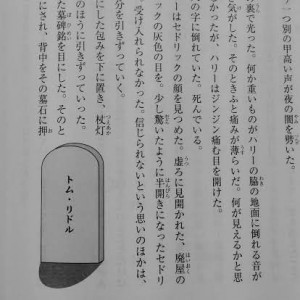 一つ別の甲高い声が夜の闇を劈いた。
裏で光った。何か重いものがハリーの脇の地面に倒れる音が
気がした。そのときふと痛みが薄らいだ。何が見えるかと思
かったが、ハリーはジンジン痛む目を開けた。
の字に倒れていた。死んでいる。
ーはセドリックの顔を見つめた。虚ろに見開かれた、廃屋の
ックの灰色の目を。少し驚いたように半開きになったセドリ
受け入れられなかった。信じられないという思いのほかは、
分を引きずっていく。
にした包みを下に置き、杖灯
のほうに引きずっていった。
た墓碑銘を目にした。そのと
にされ、背中をその墓石に押
トム・リドル